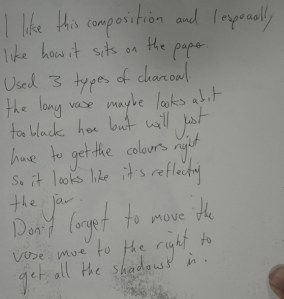 I like this composition and I especially
like how it sits on the paper.
Used 3 types of charcoal.
the long vase maybe looks a bit
too black here but will just
have to get the colours right
So it looks like it's reflecting
the jar
Don't forget to move the
vase more to the right to
get all the shadows in.